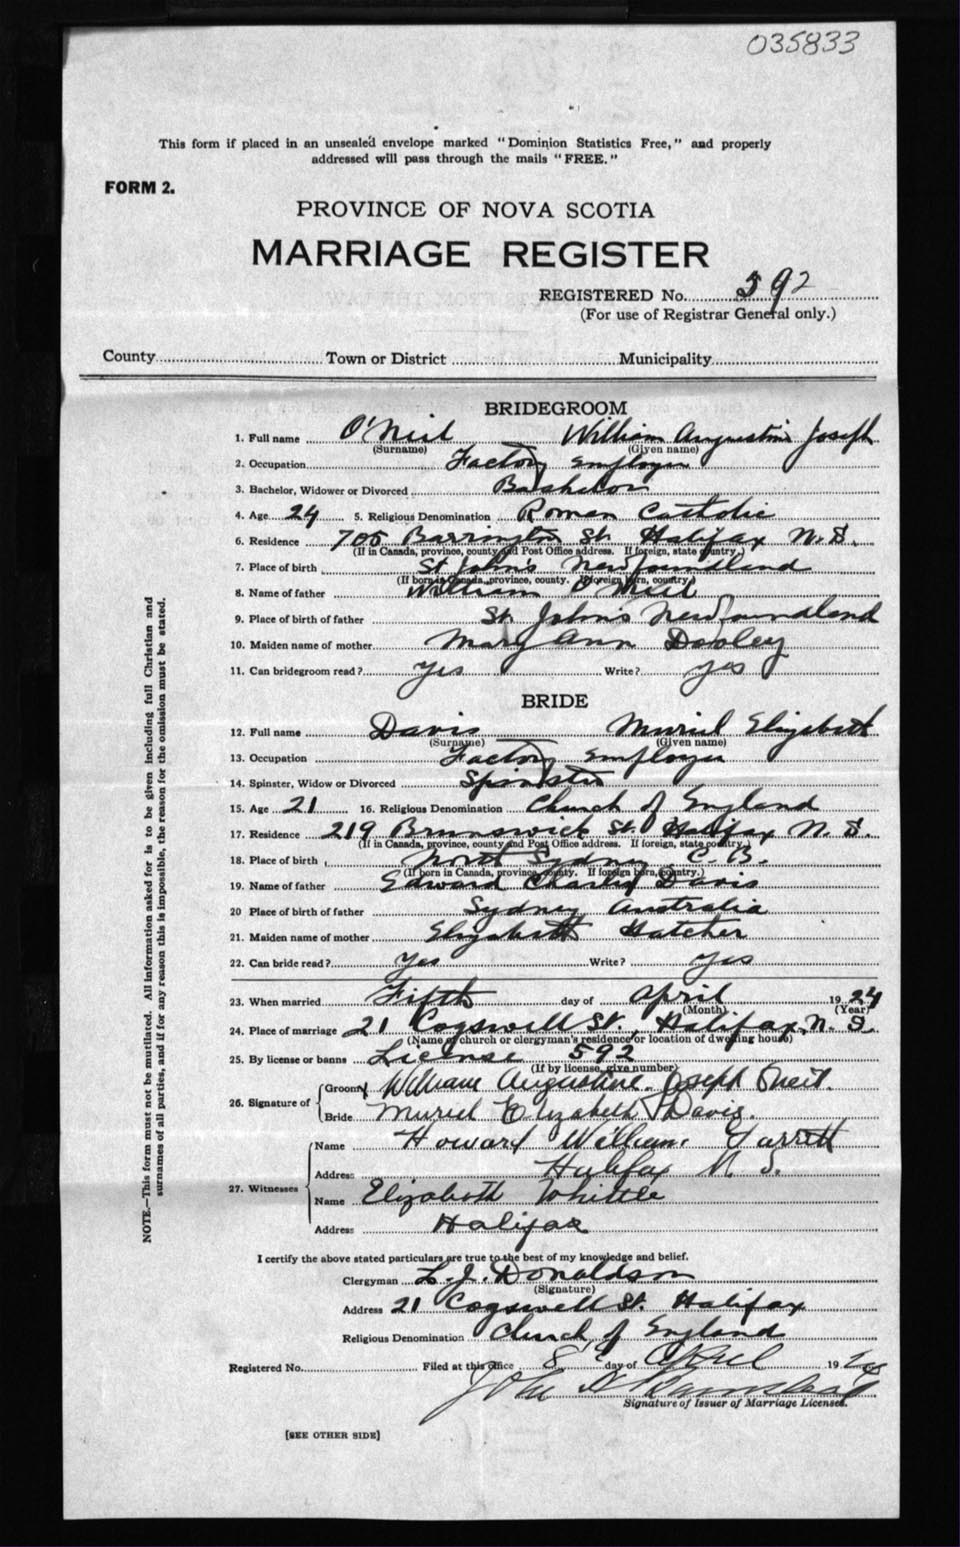 035833
This form if placed in an unsealed envelope marked "Dominion Statistics Free," and properly
addressed will pass through the mails "FREE."
FORM 2.
PROVINCE OF NOVA SCOTIA
MARRIAGE REGISTER
REGISTERED No. 592
(For use of Registrar General only.)
County Town or District Municipality
BRIDEGROOM
1. Full name O'Neil William Augustine Joseph
(Surname) (Given name)
2. Occupation Factory Employee
3. Bachelor, Widower or Divorced Bachelor
4. Age 24 5. Religious Denomination Roman Catholic
6. Residence 705 Barrington St. Halifax N.S.
(If in Canada, province, county and Post Office address. If foreign, state country.)
7. Place of birth St John's Newfoundland
(If born in Canada, province, county. If foreign born, country.)
8. Name of father William O'Neil
9. Place of birth of father St. John's Newfoundland
10. Maiden name of mother Mary Ann Dooley
11. Can bridegroom read? Yes Write? Yes
BRIDE
12. Full name Davis Muriel Elizabeth
(Surname) (Given name)
13. Occupation Factory Employee
14. Spinster, Widow or Divorced Spinster
15. Age 21 16. Religious Denomination Church of England
17. Residence 219 Brunswick St. Halifax N.S.
(If in Canada, province, county and Post Office address. If foreign, state country.)
18. Place of birth North Sydney C.B.
(If born in Canada, province, county. If foreign born, country.)
19. Name of father Edward Charles Davis
20 Place of birth of father Sydney Australia
21. Maiden name of mother Elizabeth Hatcher
22. Can bride read? Yes Write? Yes
23. When married Fifth day of April 1924
(Month) (Year)
24. Place of marriage 21 Cogswell St., Halifax, N.S.
(Name of church or clergyman's residence or location of dwelling house)
25. By license or banns License 592
(If by license, give number)
26. Signature of Groom William Augustine Joseph O'Neil.
Bride Muriel Elizabeth Davis.
27. Witnesses Name Howard William Garrett
Address Halifax N.S.
Name Elizabeth Whittle
Address Halifax
I certify the above stated particulars are true to the best of my knowledge and belief.
Clergyman L. J. Donaldson
(Signature)
Address 21 Cogswell St. Halifax
Religious Denomination Church of England
Registered No. Filed at this office 8 day of April 19
John
Signature of Issuer of Marriage Licenses.
[SEE OTHER SIDE]
NOTE.—This form must not be mutilated. All information asked for is to be given including full Christian and
surnames of all parties, and if for any reason this is impossible, the reason for the omission must be stated.